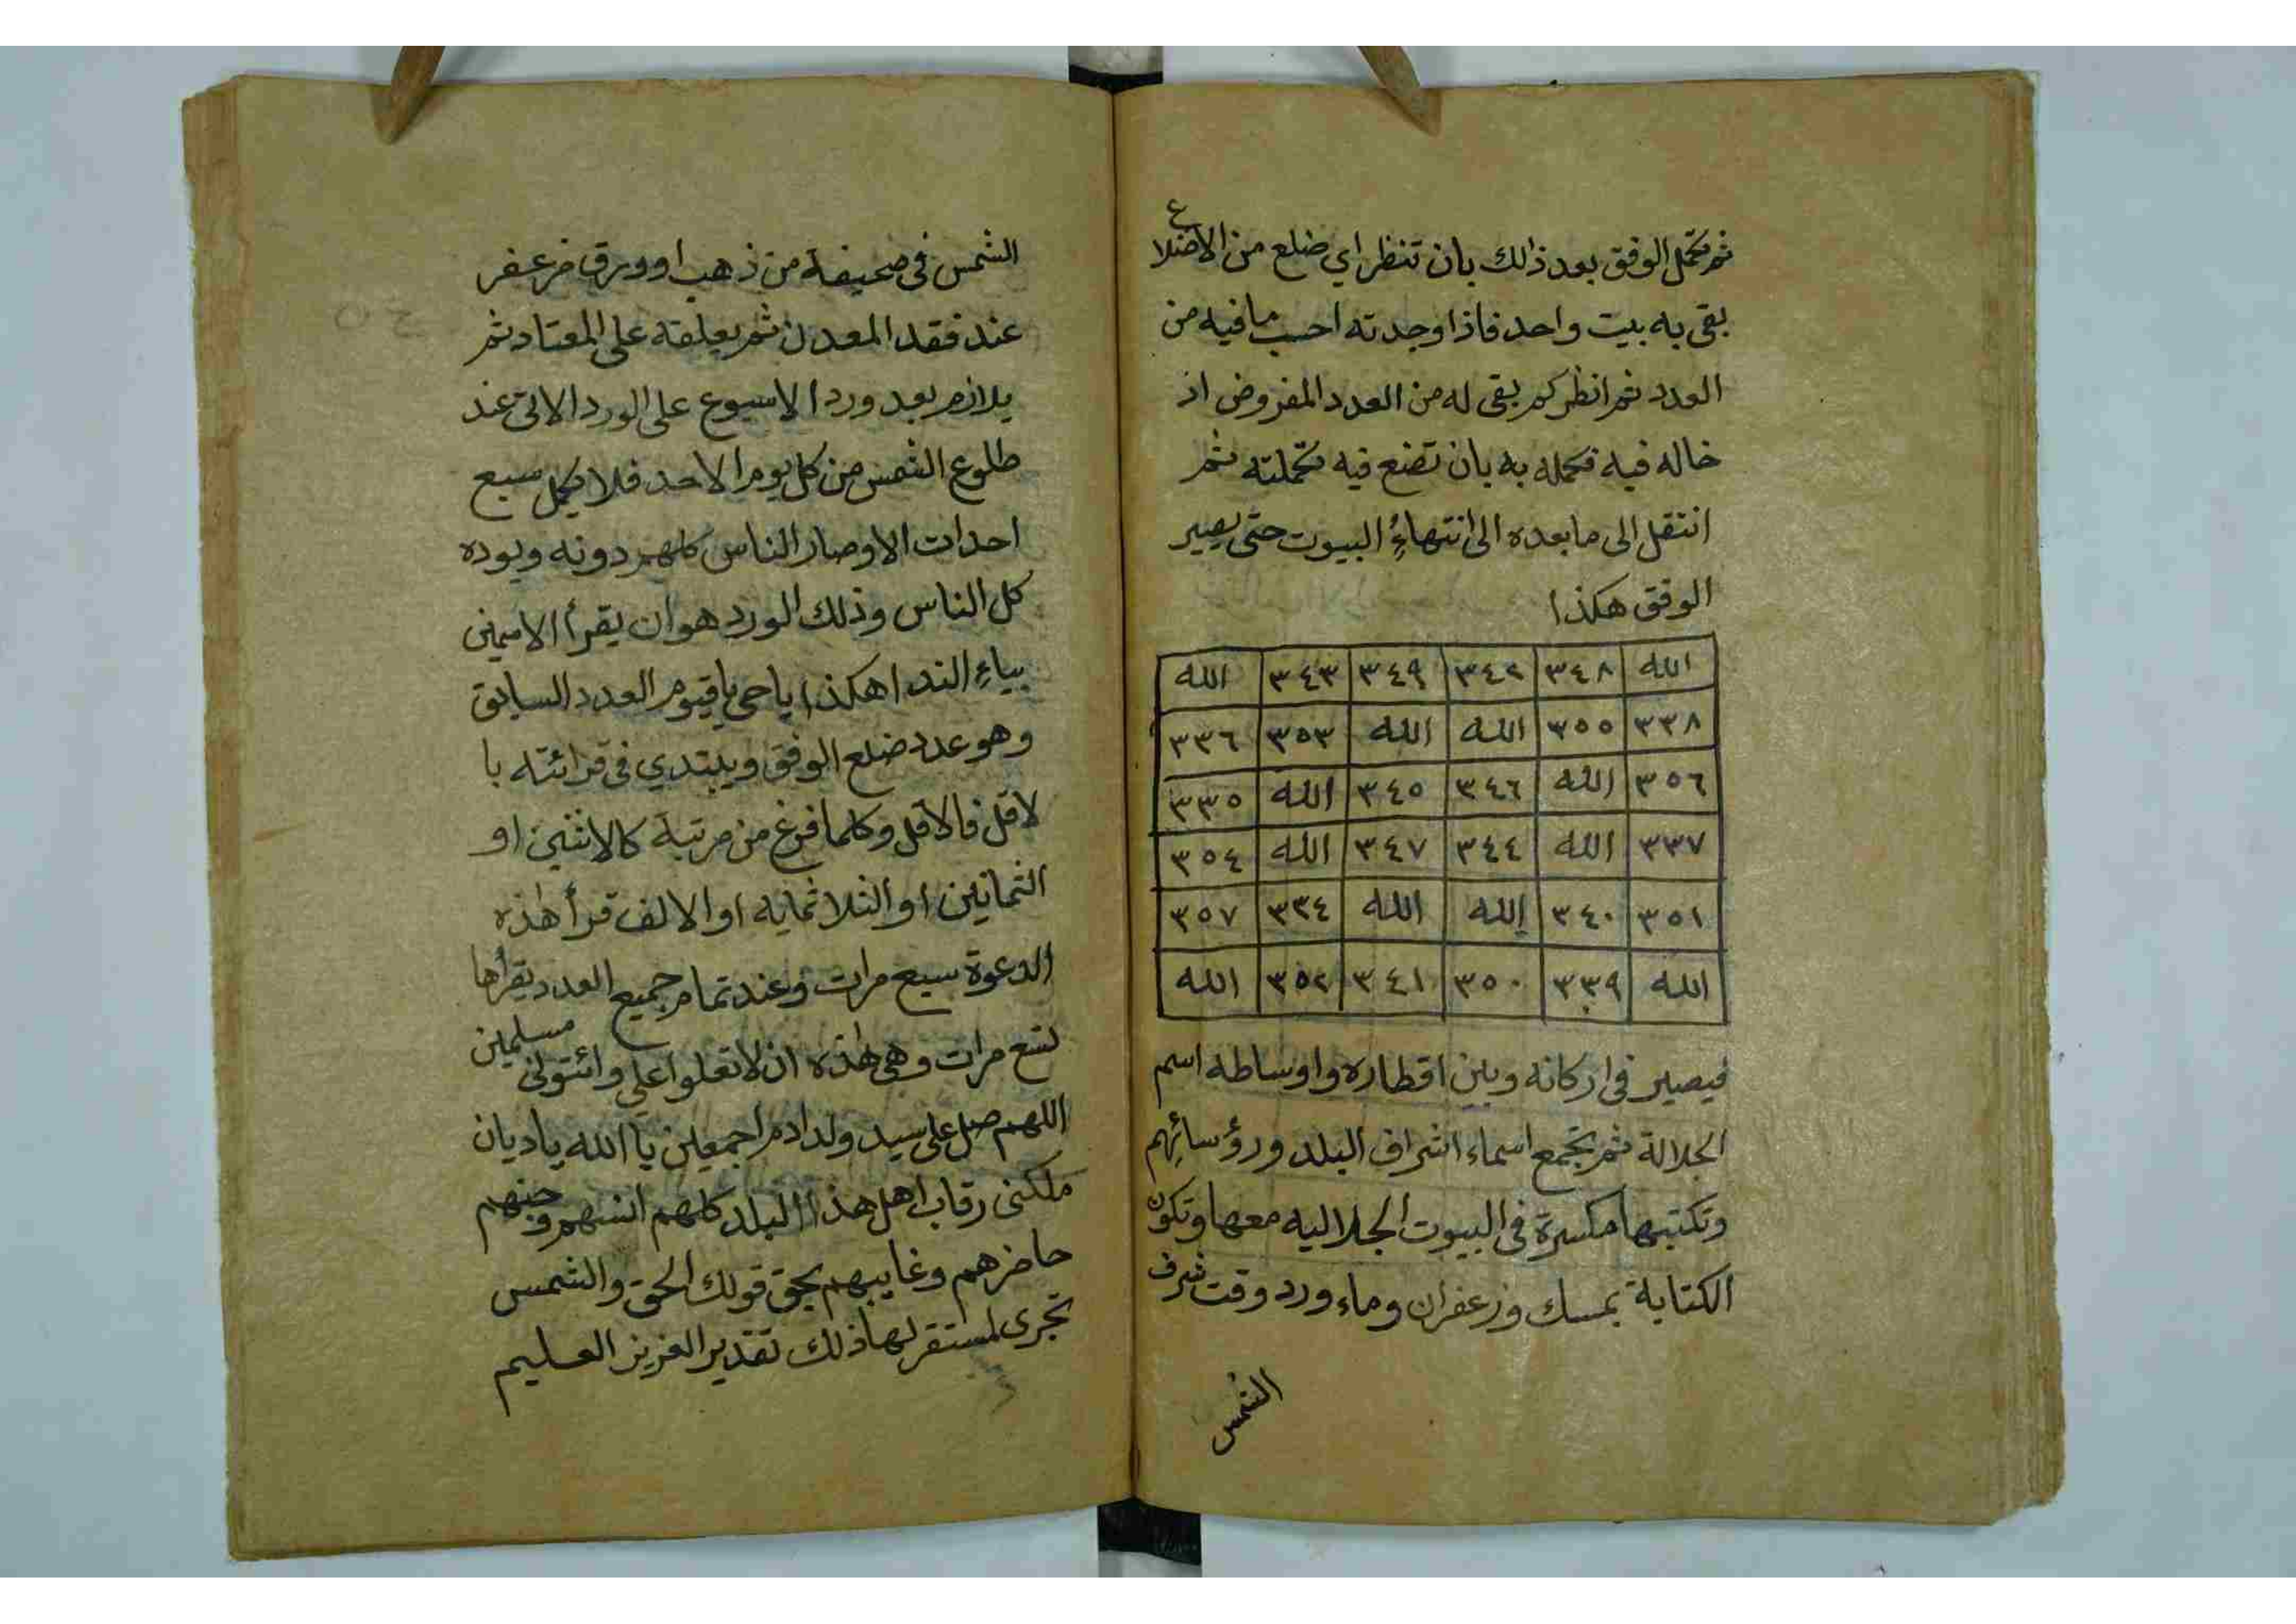 ثم تكمل الوفق بعد ذلك بان تنظر اي ضلع من الاضلاع
بقي به بيت واحد فاذا وجدته احسب ما فيه من
العدد ثم انظر كم بقي له من العدد المفروض اد
خاله فيه فكمله به بان تضع فيه تكملته ثم
انتقل الى ما بعده الى انتهاءِ البيوت حتى يصير
الوفق هكذا
الله ٣٤٨ ٣٤٢ ٣٤٩ ٣٤٣ الله
٣٣٨ ٣٥٥ الله الله ٣٥٣ ٣٣٦
٣٥٦ الله ٣٤٦ ٣٤٥ الله ٣٣٥
٣٣٧ الله ٣٤٤ ٣٤٧ الله ٣٥٤
٣٥١ ٣٤٠ الله الله ٣٣٤ ٣٥٧
الله ٣٣٩ ٣٥٠ ٣٤١ ٣٥٢ الله
فيصير في اركانه وبين اقطاره واوساطه اسم
الجلالة ثم تجمع اسماء اشراف البلد ورؤسائِهم
وتكتبها مكسرة في البيوت الجلاليه معها وتكون
الكتابة بمسك وزعفران وماء ورد وقت شرف
الشمس
الشمس في صحيفة من ذهب او ورق مزعفر
عند فقد المعدن ثم يعلقه على المعتاد ثم
يلازم بعد ورد الاسبوع على الورد الاتي عند
طلوع الشمس من كل يوم الاحد فلا يكمل سبع
احدات الا وصار الناس كلهم دونه ويوده
كل الناس وذلك الورد هو ان يقرأ الاسمين
بياءِ الندا هكذا يا حي يا قيوم العدد السابق
وهو عدد ضلع الوفق ويبتدي في قرائته با
لاقل فالاقل وكلما فرغ من مرتبة كالاثنين او
الثمانين او الثلاثمايه او الالف قرأ هٰذه
الدعوة سبع مرات وعند تمام جميع العدد يقرأها
تسع مرات وهي هٰذه ان لا تعلوا علي وائتوني مسلمين
اللهم صل على سيد ولد ادم اجمعين يا الله يا ديان
ملكني رقاب اهل هذا البلد كلهم انسهم وجنهم
حاضرهم وغايبهم بحق قولك الحق والشمس
تجري لمستقر لها ذلك تقدير العزيز العليم